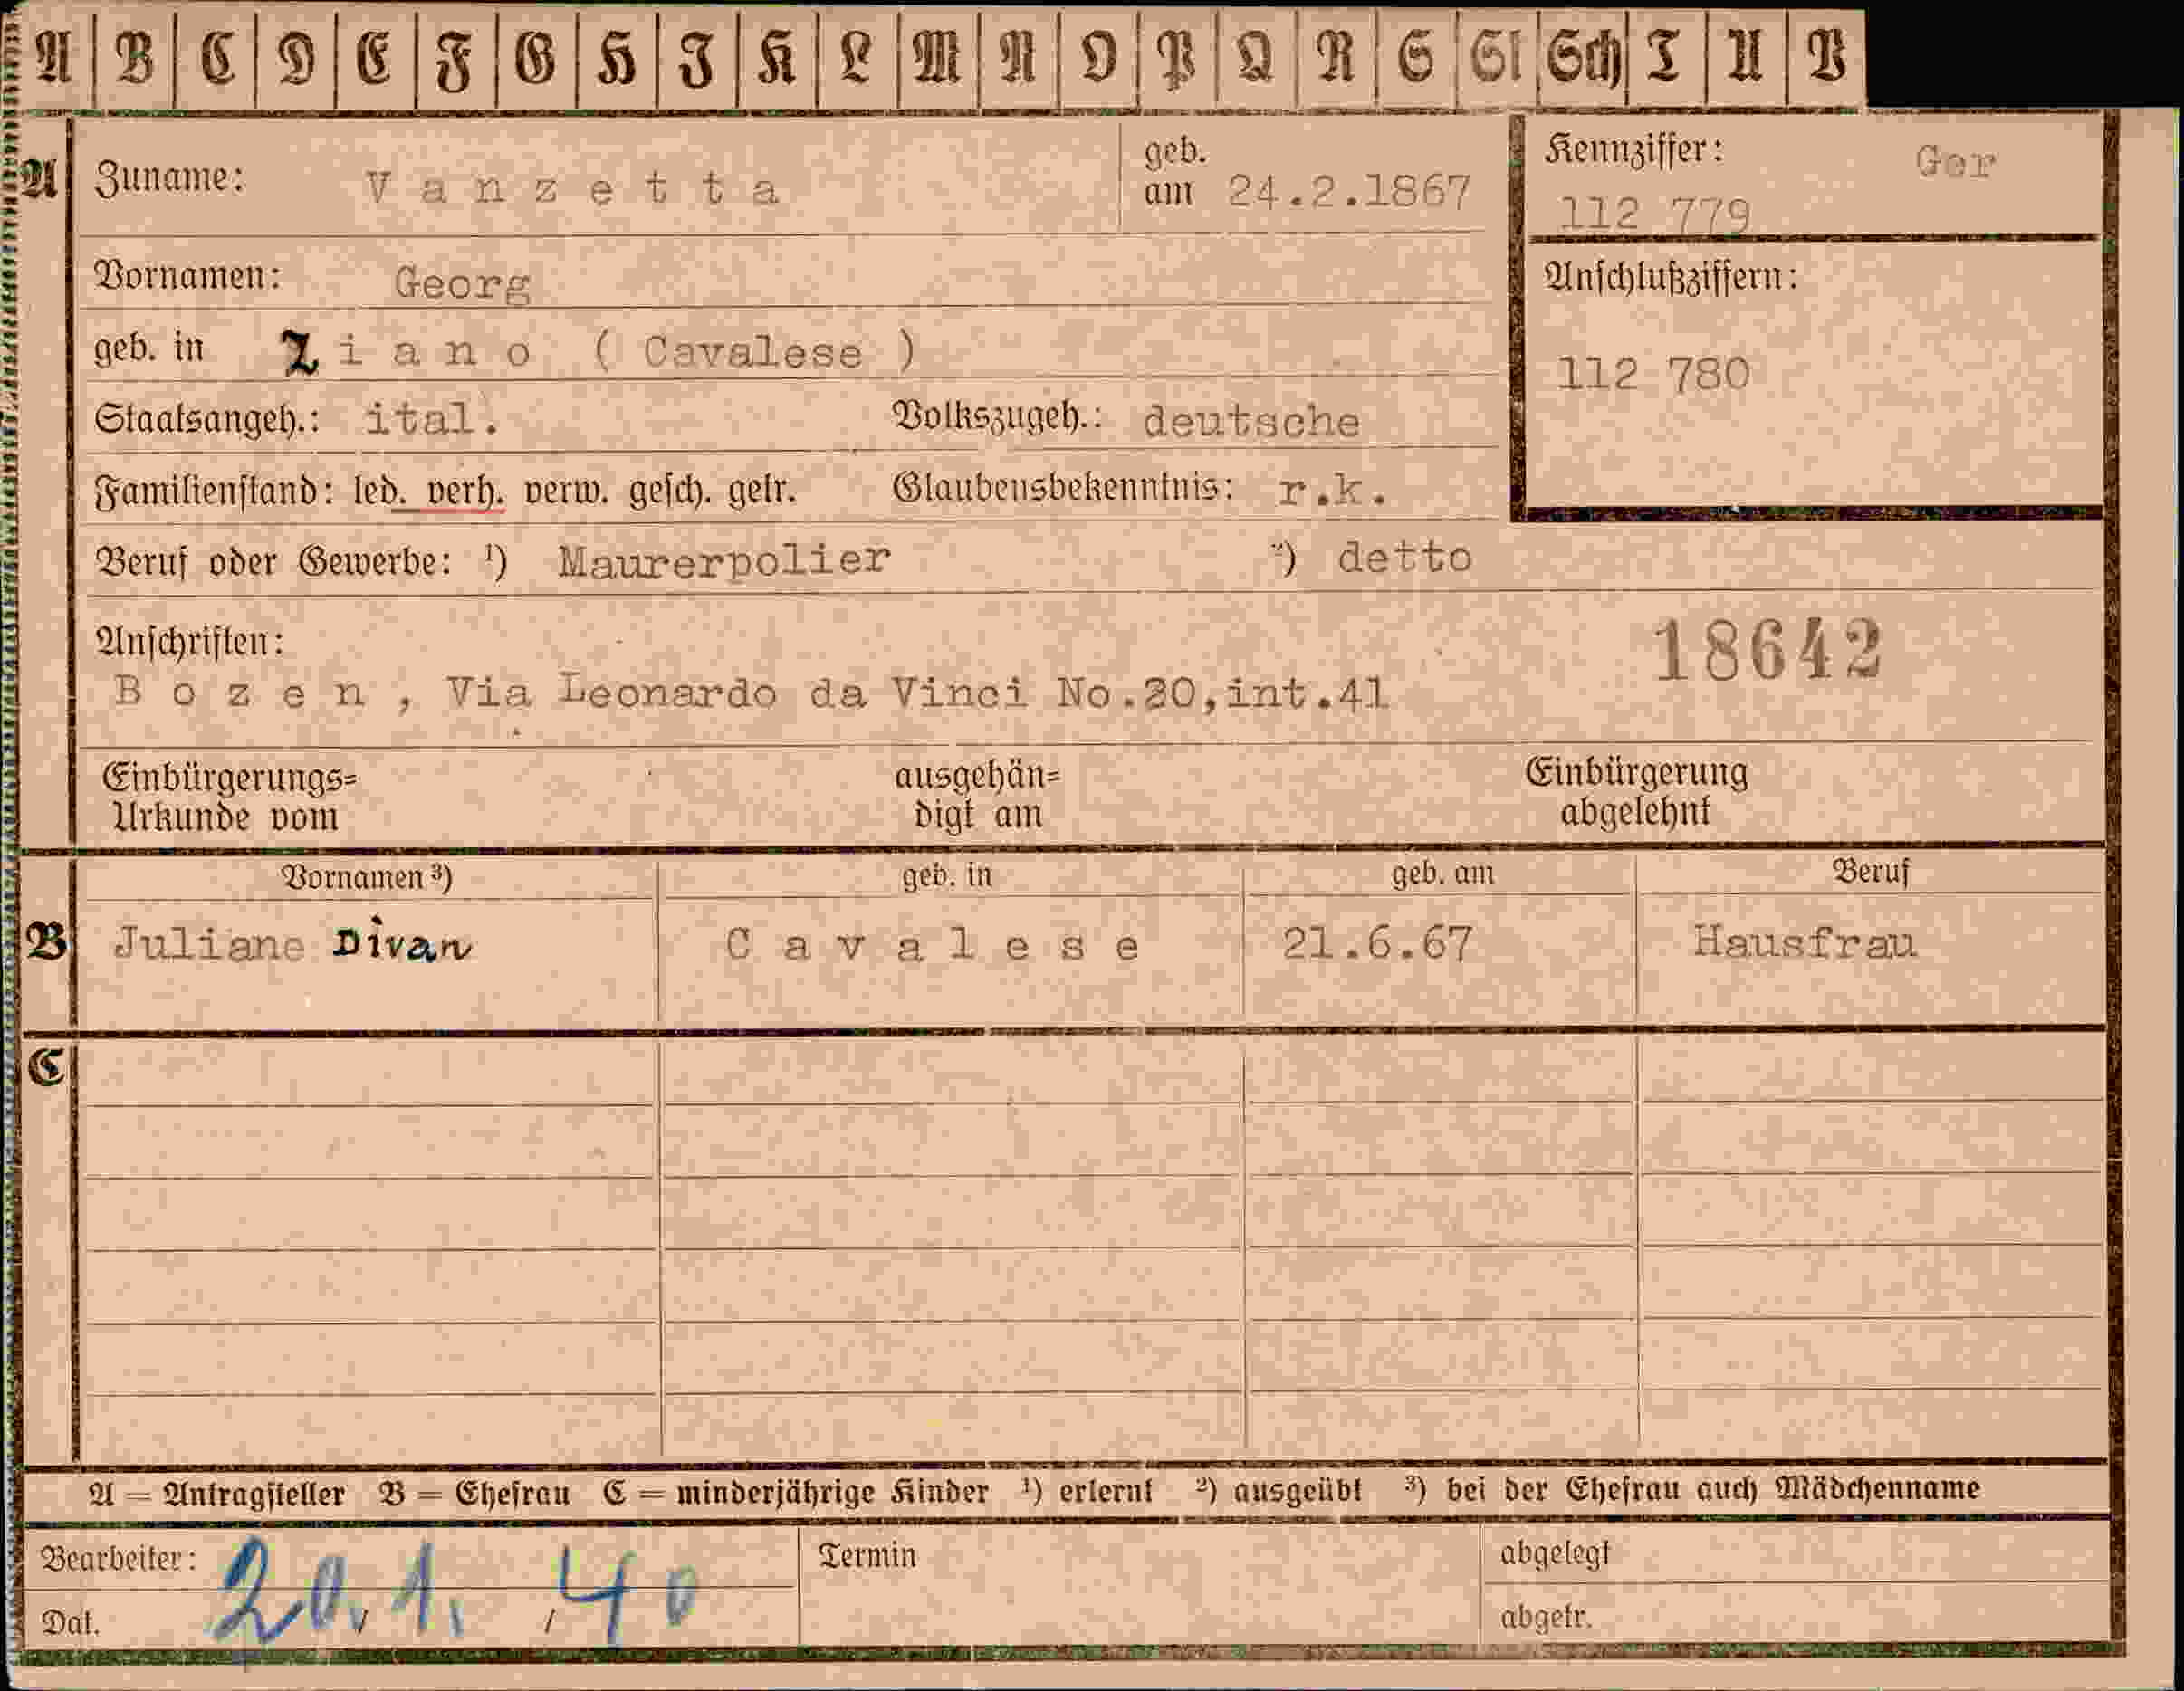 A B C D E F G H I K L M N O P Q R S St Sch T U V
A Zuname: Vanzetta geb. am 24.2.1867 Kennziffer: Ger
112 779
Vornamen: Georg Anschlußziffern:
geb. in Ziano ( Cavalese )
112 780
Staatsangeh.: ital. Volkszugeh.: deutsche
Familienstand: led. verh. verw. gesch. getr. Glaubensbekenntnis: r.k.
Beruf oder Gewerbe: ¹) Maurerpolier ²) detto
Anschriften: 18642
Bozen, Via Leonardo da Vinci No.20,int.41
Einbürgerungs= ausgehän= Einbürgerung
Urkunde vom digt am abgelehnt
Vornamen ³) geb. in geb. am Beruf
B Juliane Divan Cavalese 21.6.67 Hausfrau
C
A = Antragsteller B = Ehefrau C = minderjährige Kinder ¹) erlernt ²) ausgeübt ³) bei der Ehefrau auch Mädchenname
Bearbeiter: Termin abgelegt
Dat. 20.1./40 abgetr.